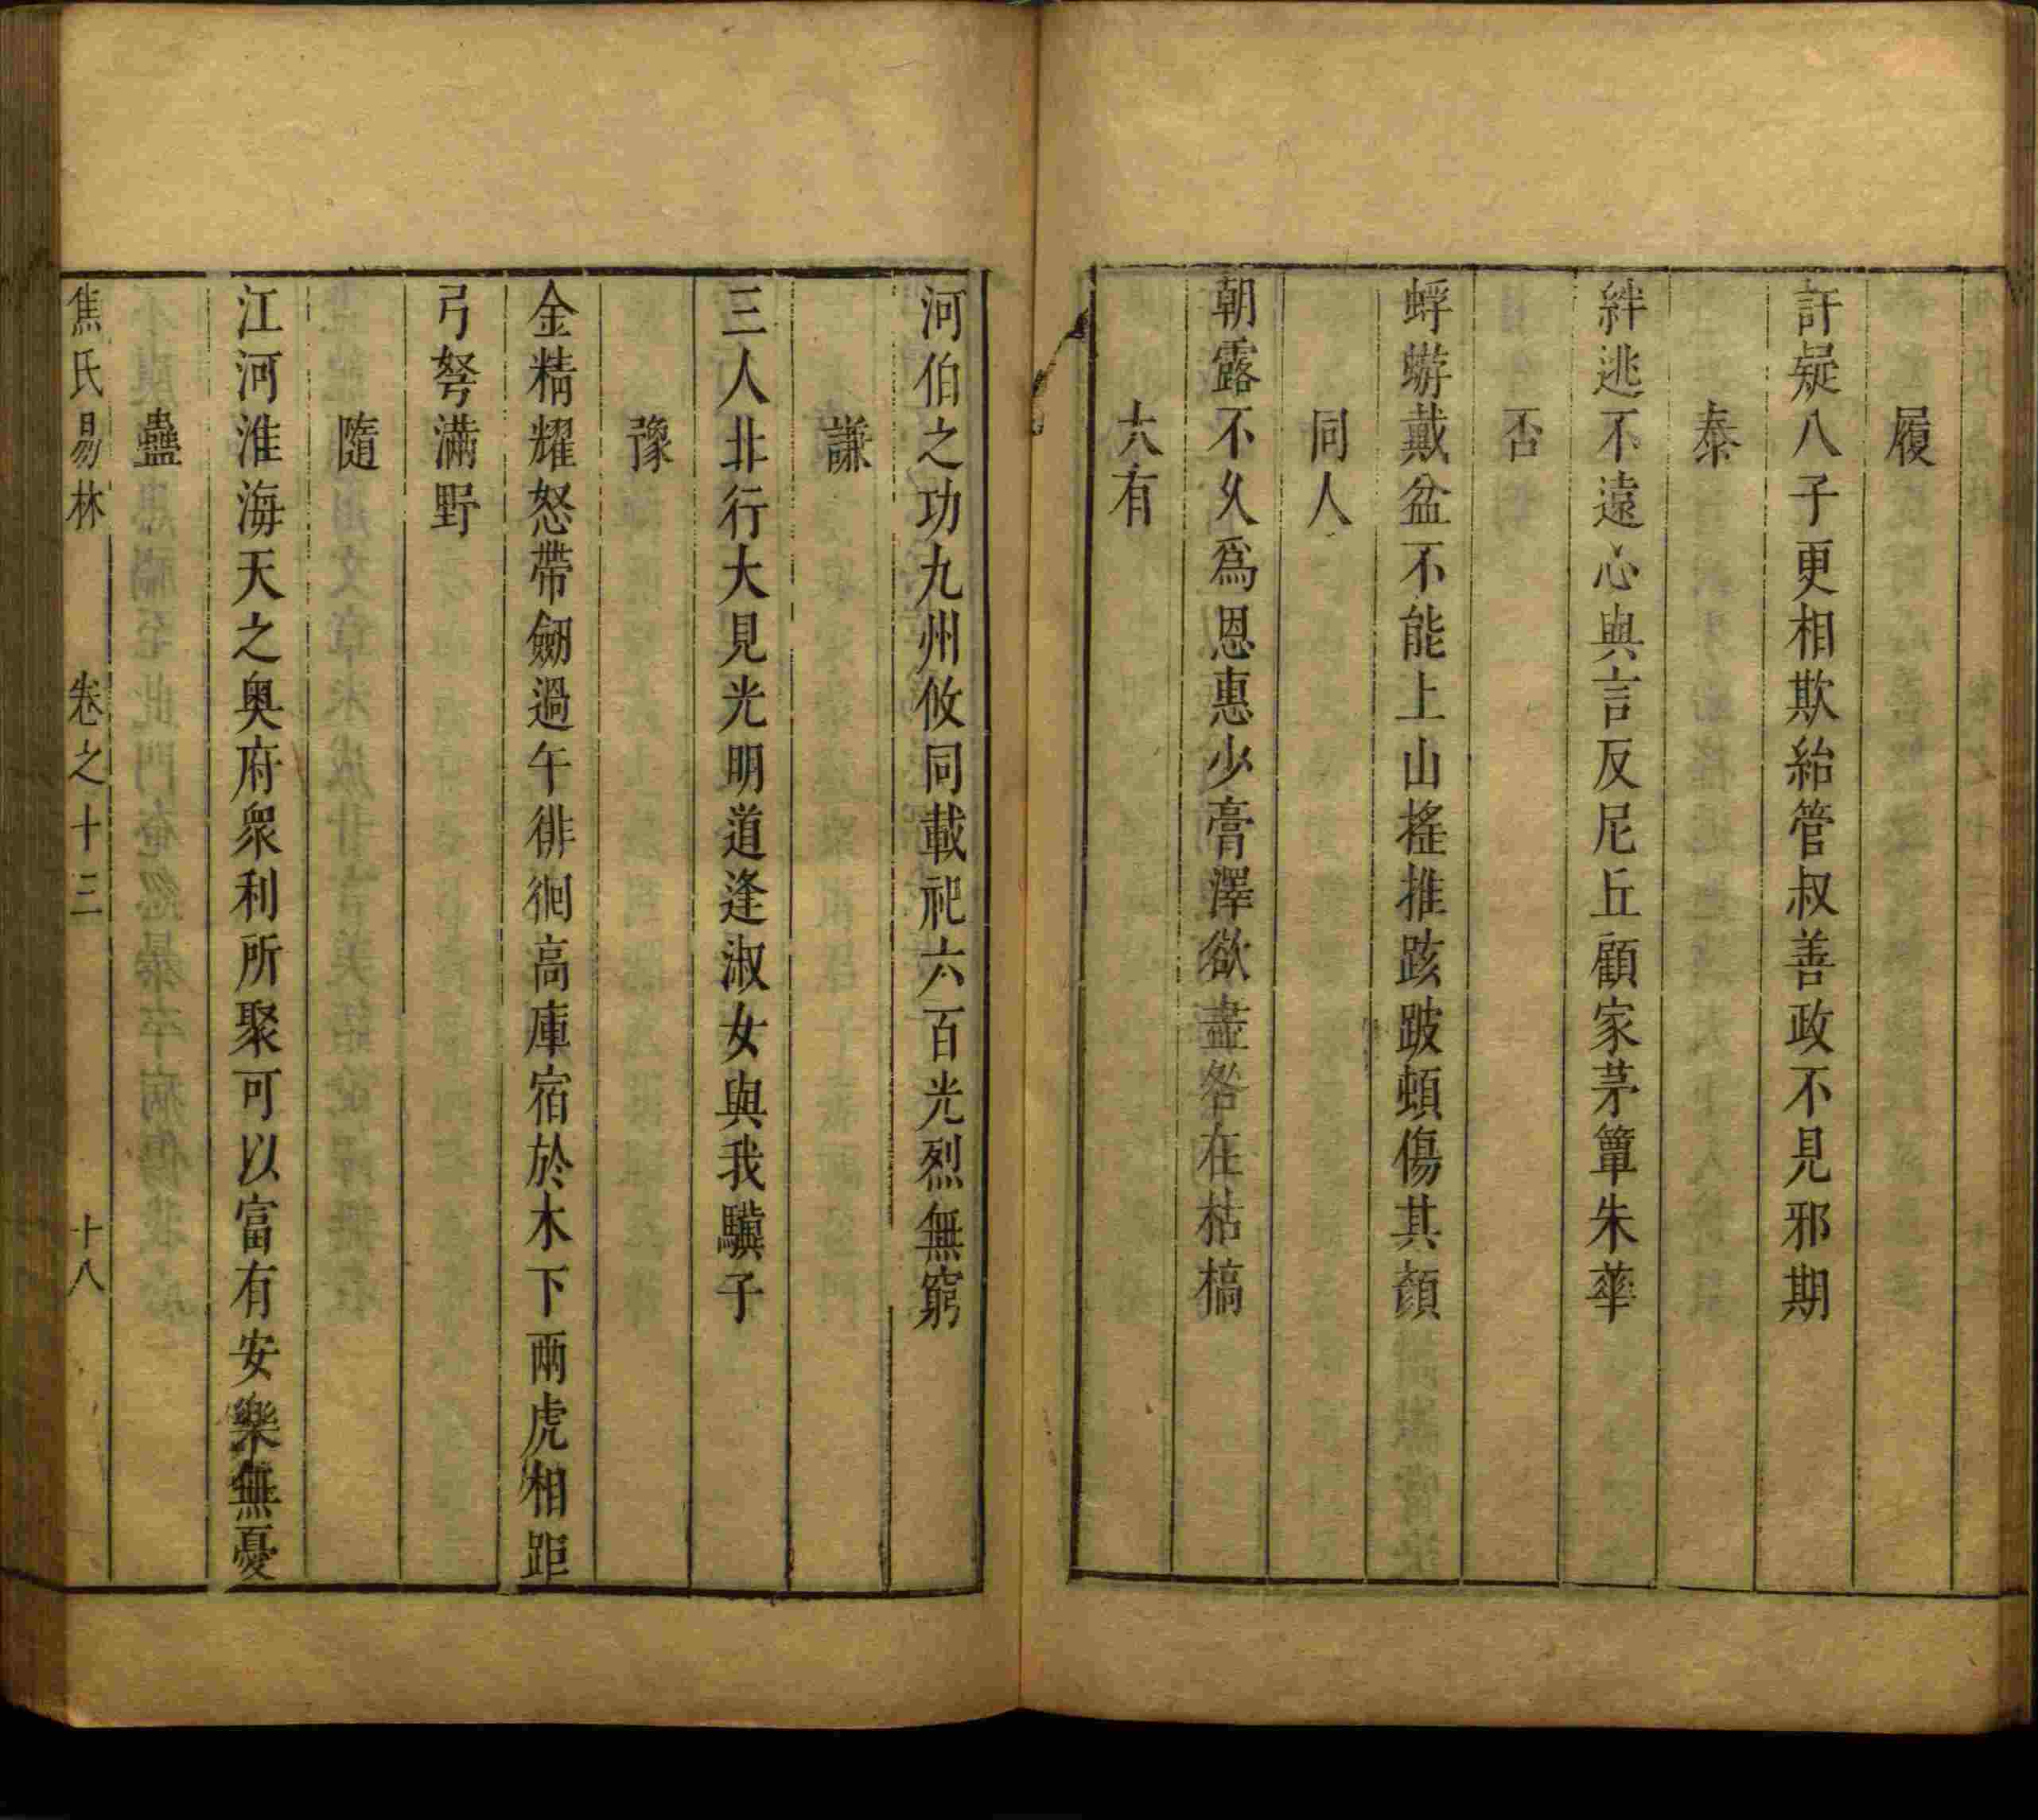 履
許疑八子更相欺紿管叔善政不見邪期
泰
絆逃不遠心與言反尼丘顧家茅簟朱華
否
蜉蝣戴盆不能上山搖推跌跛頓傷其顏
同人
朝露不久為恩惠少膏澤欲盡咎在枯槁
大有
河伯之功九州攸同載祀六百光烈無窮
謙
三人北行大見光明道逢淑女與我驥子
豫
金精耀怒帶劒過午徘徊高庫宿於木下兩虎相距
弓弩滿野
隨
江河淮海天之奥府衆利所聚可以富有安樂無憂
蠱
焦氏易林 卷之十三 十八